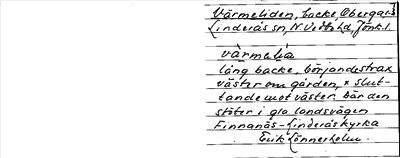 Värmeliden, backe, Obergård
Linderås sn, N. Vedbo hd, Jönk. l.
värmelia
lång backe, började strax
väster om gården, sluttande
mot väster. Där den
stöter i gla landsvägen
Finnanäs-Linderås kyrka
Erik Lönnerholm.